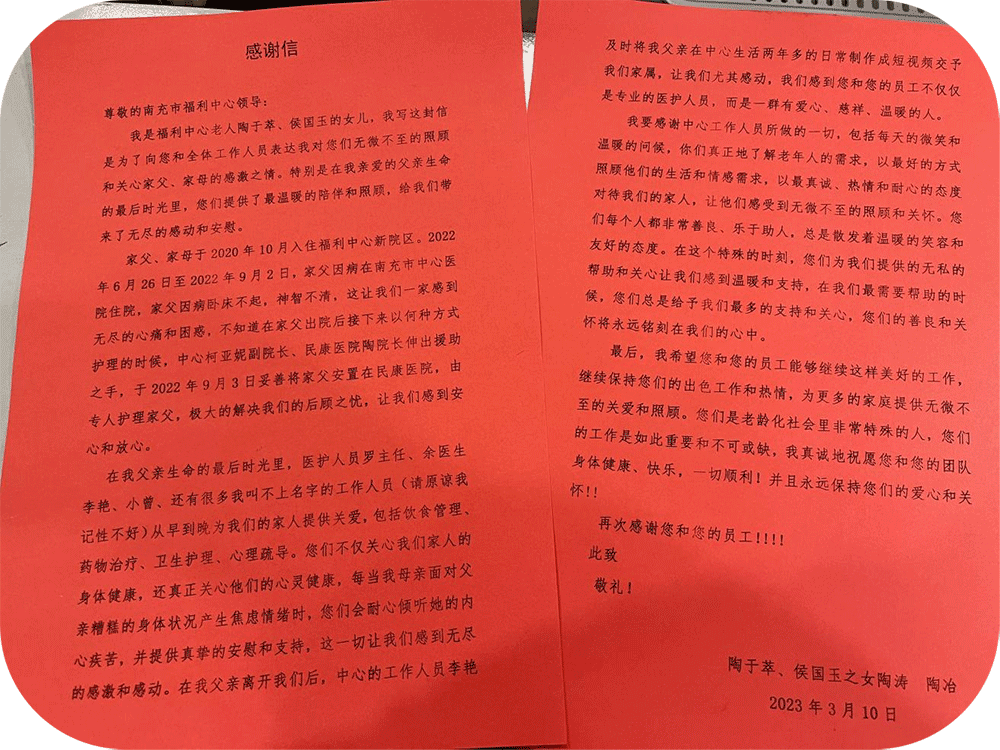 感谢信
尊敬的南充市福利中心领导：
我是福利中心老人陶于萃、侯国玉的女儿，我写这封信
是为了向您和全体工作人员表达我对您们无微不至的照顾
和关心家父、家母的感激之情。特别是在我亲爱的父亲生命
的最后时光里，您们提供了最温暖的陪伴和照顾，给我们带
来了无尽的感动和安慰。
家父、家母于 2020 年 10 月入住福利中心新院区。2022
年 6 月 26 日至 2022 年 9 月 2 日，家父因病在南充市中心医
院住院，家父因病卧床不起，神智不清，这让我们一家感到
无尽的心痛和困惑，不知道在家父出院后接下来以何种方式
护理的时候，中心柯亚妮副院长、民康医院陶院长伸出援助
之手，于 2022 年 9 月 3 日妥善将家父安置在民康医院，由
专人护理家父，极大的解决我们的后顾之忧，让我们感到安
心和放心。
在我父亲生命的最后时光里，医护人员罗主任、余医生
李艳、小曾、还有很多我叫不上名字的工作人员（请原谅我
记性不好）从早到晚为我们的家人提供关爱，包括饮食管理、
药物治疗、卫生护理、心理疏导。您们不仅关心我们家人的
身体健康，还真正关心他们的心灵健康，每当我母亲面对父
亲糟糕的身体状况产生焦虑情绪时，您们会耐心倾听她的内
心疾苦，并提供真挚的安慰和支持，这一切让我们感到无尽
的感激和感动。在我父亲离开我们后，中心的工作人员李艳
及时将我父亲在中心生活两年多的日常制作成短视频交予
我们家属，让我们尤其感动，我们感到您和您的员工不仅仅
是专业的医护人员，而是一群有爱心、慈祥、温暖的人。
我要感谢中心工作人员所做的一切，包括每天的微笑和
温暖的问候，你们真正地了解老年人的需求，以最好的方式
照顾他们的生活和情感需求，以最真诚、热情和耐心的态度
对待我们的家人，让他们感受到无微不至的照顾和关怀。您
们每个人都非常善良、乐于助人，总是散发着温暖的笑容和
友好的态度。在这个特殊的时刻，您们为我们提供的无私的
帮助和关心让我们感到温暖和支持，在我们最需要帮助的时
候，您们总是给予我们最多的支持和关心，您们的善良和关
怀将永远铭刻在我们的心中。
最后，我希望您和您的员工能够继续这样美好的工作，
继续保持您们的出色工作和热情，为更多的家庭提供无微不
至的关爱和照顾。您们是老龄化社会里非常特殊的人，您们
的工作是如此重要和不可或缺，我真诚地祝愿您和您的团队
身体健康、快乐，一切顺利！并且永远保持您们的爱心和关
怀!!
再次感谢您和您的员工!!!!
此致
敬礼！
陶于萃、侯国玉之女陶涛 陶冶
2023 年 3 月 10 日